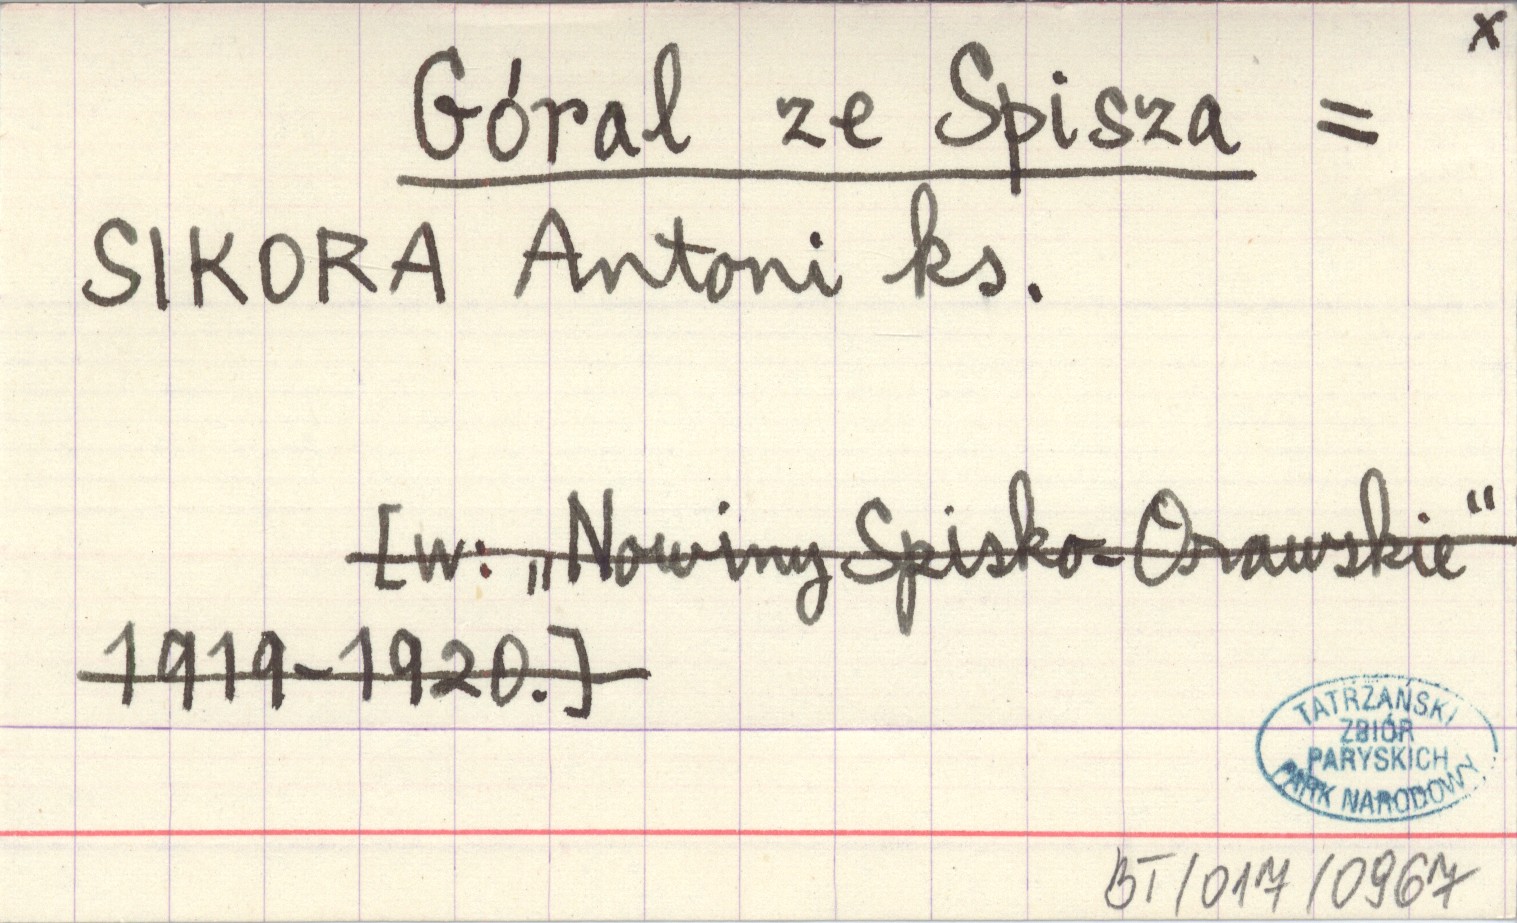 x
Góral ze Spisza =
SIKORA Antoni ks.
[w: „Nowiny Spisko=Orawskie“
1919-1920.]
TATRZAŃSKI
ZBIÓR
PARYSKICH
PARK NARODOWY
BT/017/0967